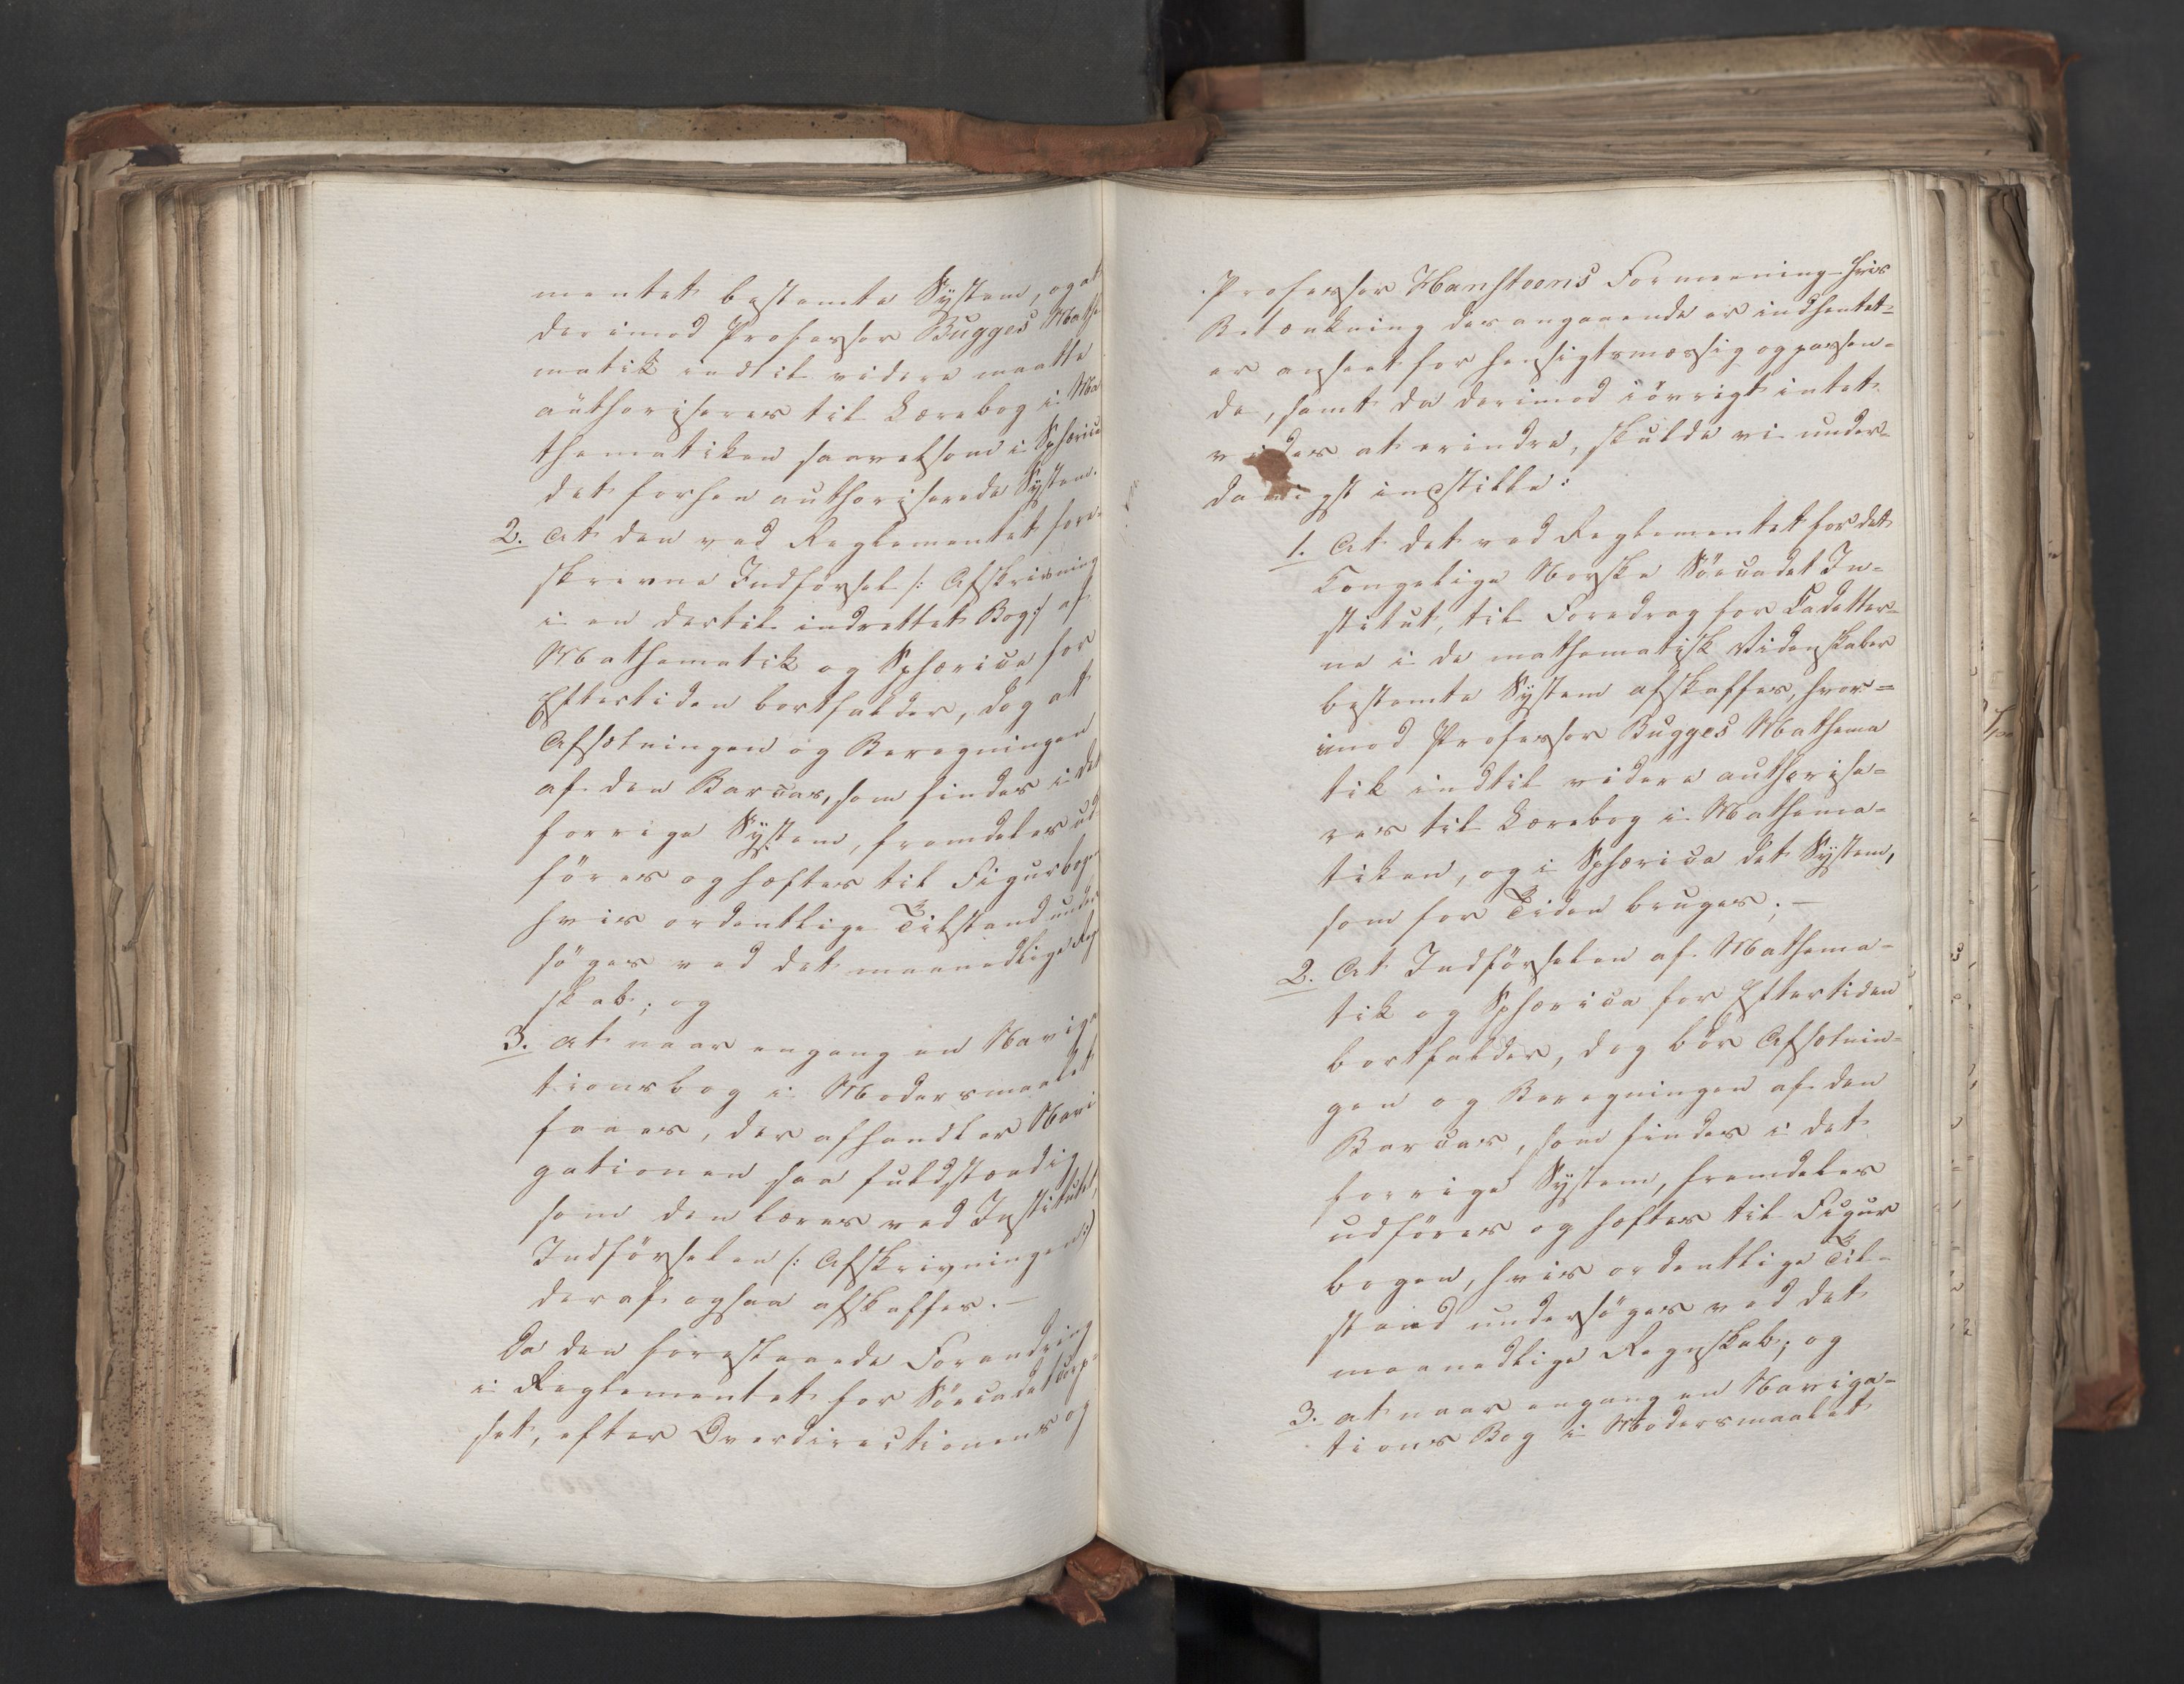 mentet bestemte System, og at
derimod Professor Bugges Mathe
matik indtil videre maatte
authoriseres til Lærebog i Ma
thematiken saavelsom i Sphærica
det forhen authoriserede System.
2. At den ved Reglementet fore-
skrevne Indførsel /: Afskrivning
i en dertil indrettet Bog :/ af
Mathematik og Sphærica for
Eftertiden bortfalder, dog at
Afsætningen og Beregningen
af den Barcas, som findes i det
forrige System, fremdeles ud
føres og hæftes til Figurbogen
hvis ordentlige Tilstand under
søges ved det maanedlige Reg
skab; og
3. at naar engang en Naviga
tionsbog i Modersmaalet
faaes, der afhandler Navi
gationen saa fuldstændig
som den læres ved Institutet,
Indførselen /: Afskrivningen :/
deraf ogsaa afskaffes. —
Da den forestaaende Forandring
i Reglementet for Søecadetcorp-
set, efter Overdirectionens og
Professor Hansteens Formeening - hvis
Betænkning desangaaende er indhentet -
er anseet for hensigtsmæssig og passen-
de, samt da derimod iøvrigt intet
vides at erindre, skulde vi under-
danigst indstille:
1. At det ved Reglementet for det
Kongelige Norske Søecadet In-
stitut, til Foredrag for Cadetter-
ne i de mathematisk Videnskaber
bestemte System afskaffes, hvor-
imod Professor Bugges Mathema
tik indtil videre authorise-
res til Lærebog i Mathema-
tiken, og i Sphærica det System,
som for Tiden bruges; —
2. At Indførselen af Mathema-
tik og Sphærica for Eftertiden
bortfalder, dog bør Afsætnin-
gen og Beregningen af den
Barcas, som findes i det
forrige System, fremdeles
udføres og hæftes til Figur
bogen, hvis ordentlige Til-
stand undersøges ved det
maanedlige Regnskab; og
3. at naar engang en Naviga-
tions Bog i Modersmaalet